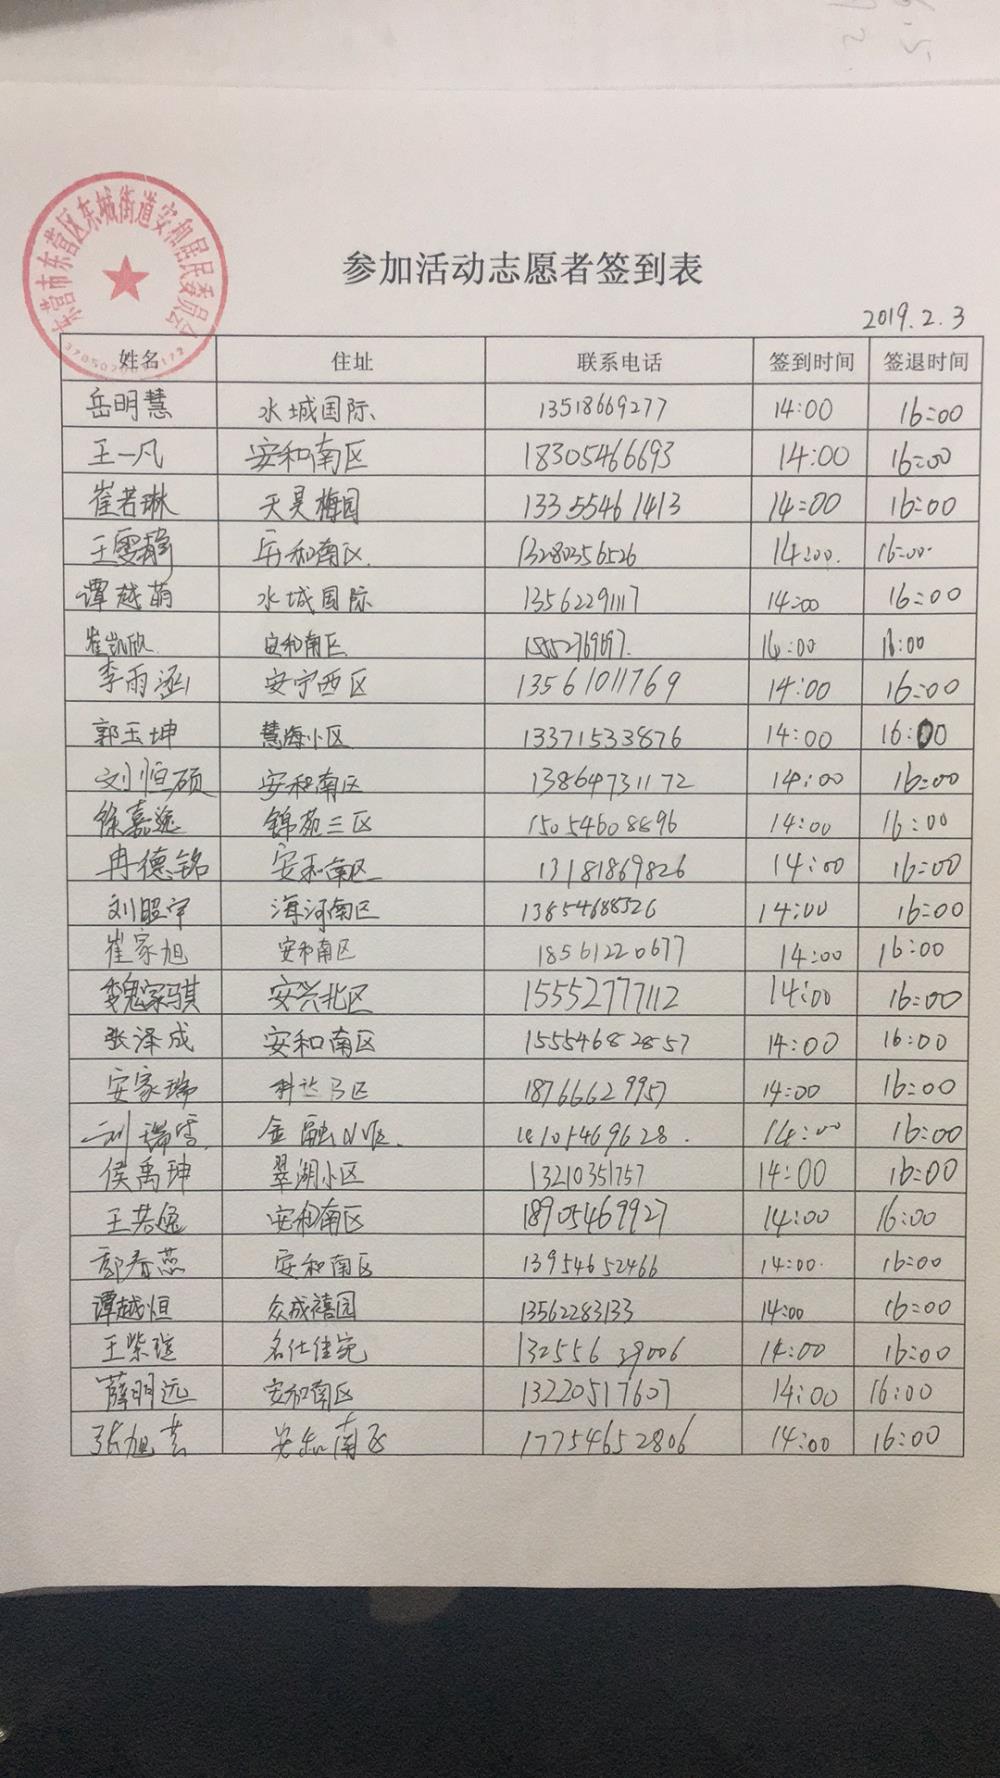 东营市东营区东城街道安和居民委员会
参加活动志愿者签到表
2019.2.3
姓名 住址 联系电话 签到时间 签退时间
岳明慧 水城国际 13518669277 14:00 16:00
王一凡 安和南区 18305466693 14:00 16:00
崔若琳 天昊梅园 13355461413 14:00 16:00
王雯静 安和南区 13280356526 14:00 16:00
谭越萌 水城国际 13562291117 14:00 16:00
崔凯欣 安和南区 14:00 16:00
李雨涵 安宁西区 13561011769 14:00 16:00
郭玉坤 慧海小区 13371533876 14:00 16:00
刘恒硕 安和南区 13864731172 14:00 16:00
徐嘉逸 锦苑三区 15054608896 14:00 16:00
冉德铭 安和南区 13181869826 14:00 16:00
刘昭宇 海河南区 13854688526 14:00 16:00
崔家旭 安和南区 18561220677 14:00 16:00
魏家骐 安兴北区 15552777112 14:00 16:00
张泽成 安和南区 15554682857 14:00 16:00
安家瑞 科达马区 18766629957 14:00 16:00
刘瑞雪 金融小区 14:00 16:00
侯禹珅 翠湖小区 13210351757 14:00 16:00
王若逸 安和南区 18905469927 14:00 16:00
郭春蕊 安和南区 13954652466 14:00 16:00
谭越恒 众成禧园 13562283133 14:00 16:00
王紫瑄 名仕佳苑 13255639006 14:00 16:00
薛明远 安和南区 13220517607 14:00 16:00
张旭 安和南区 17754652806 14:00 16:00